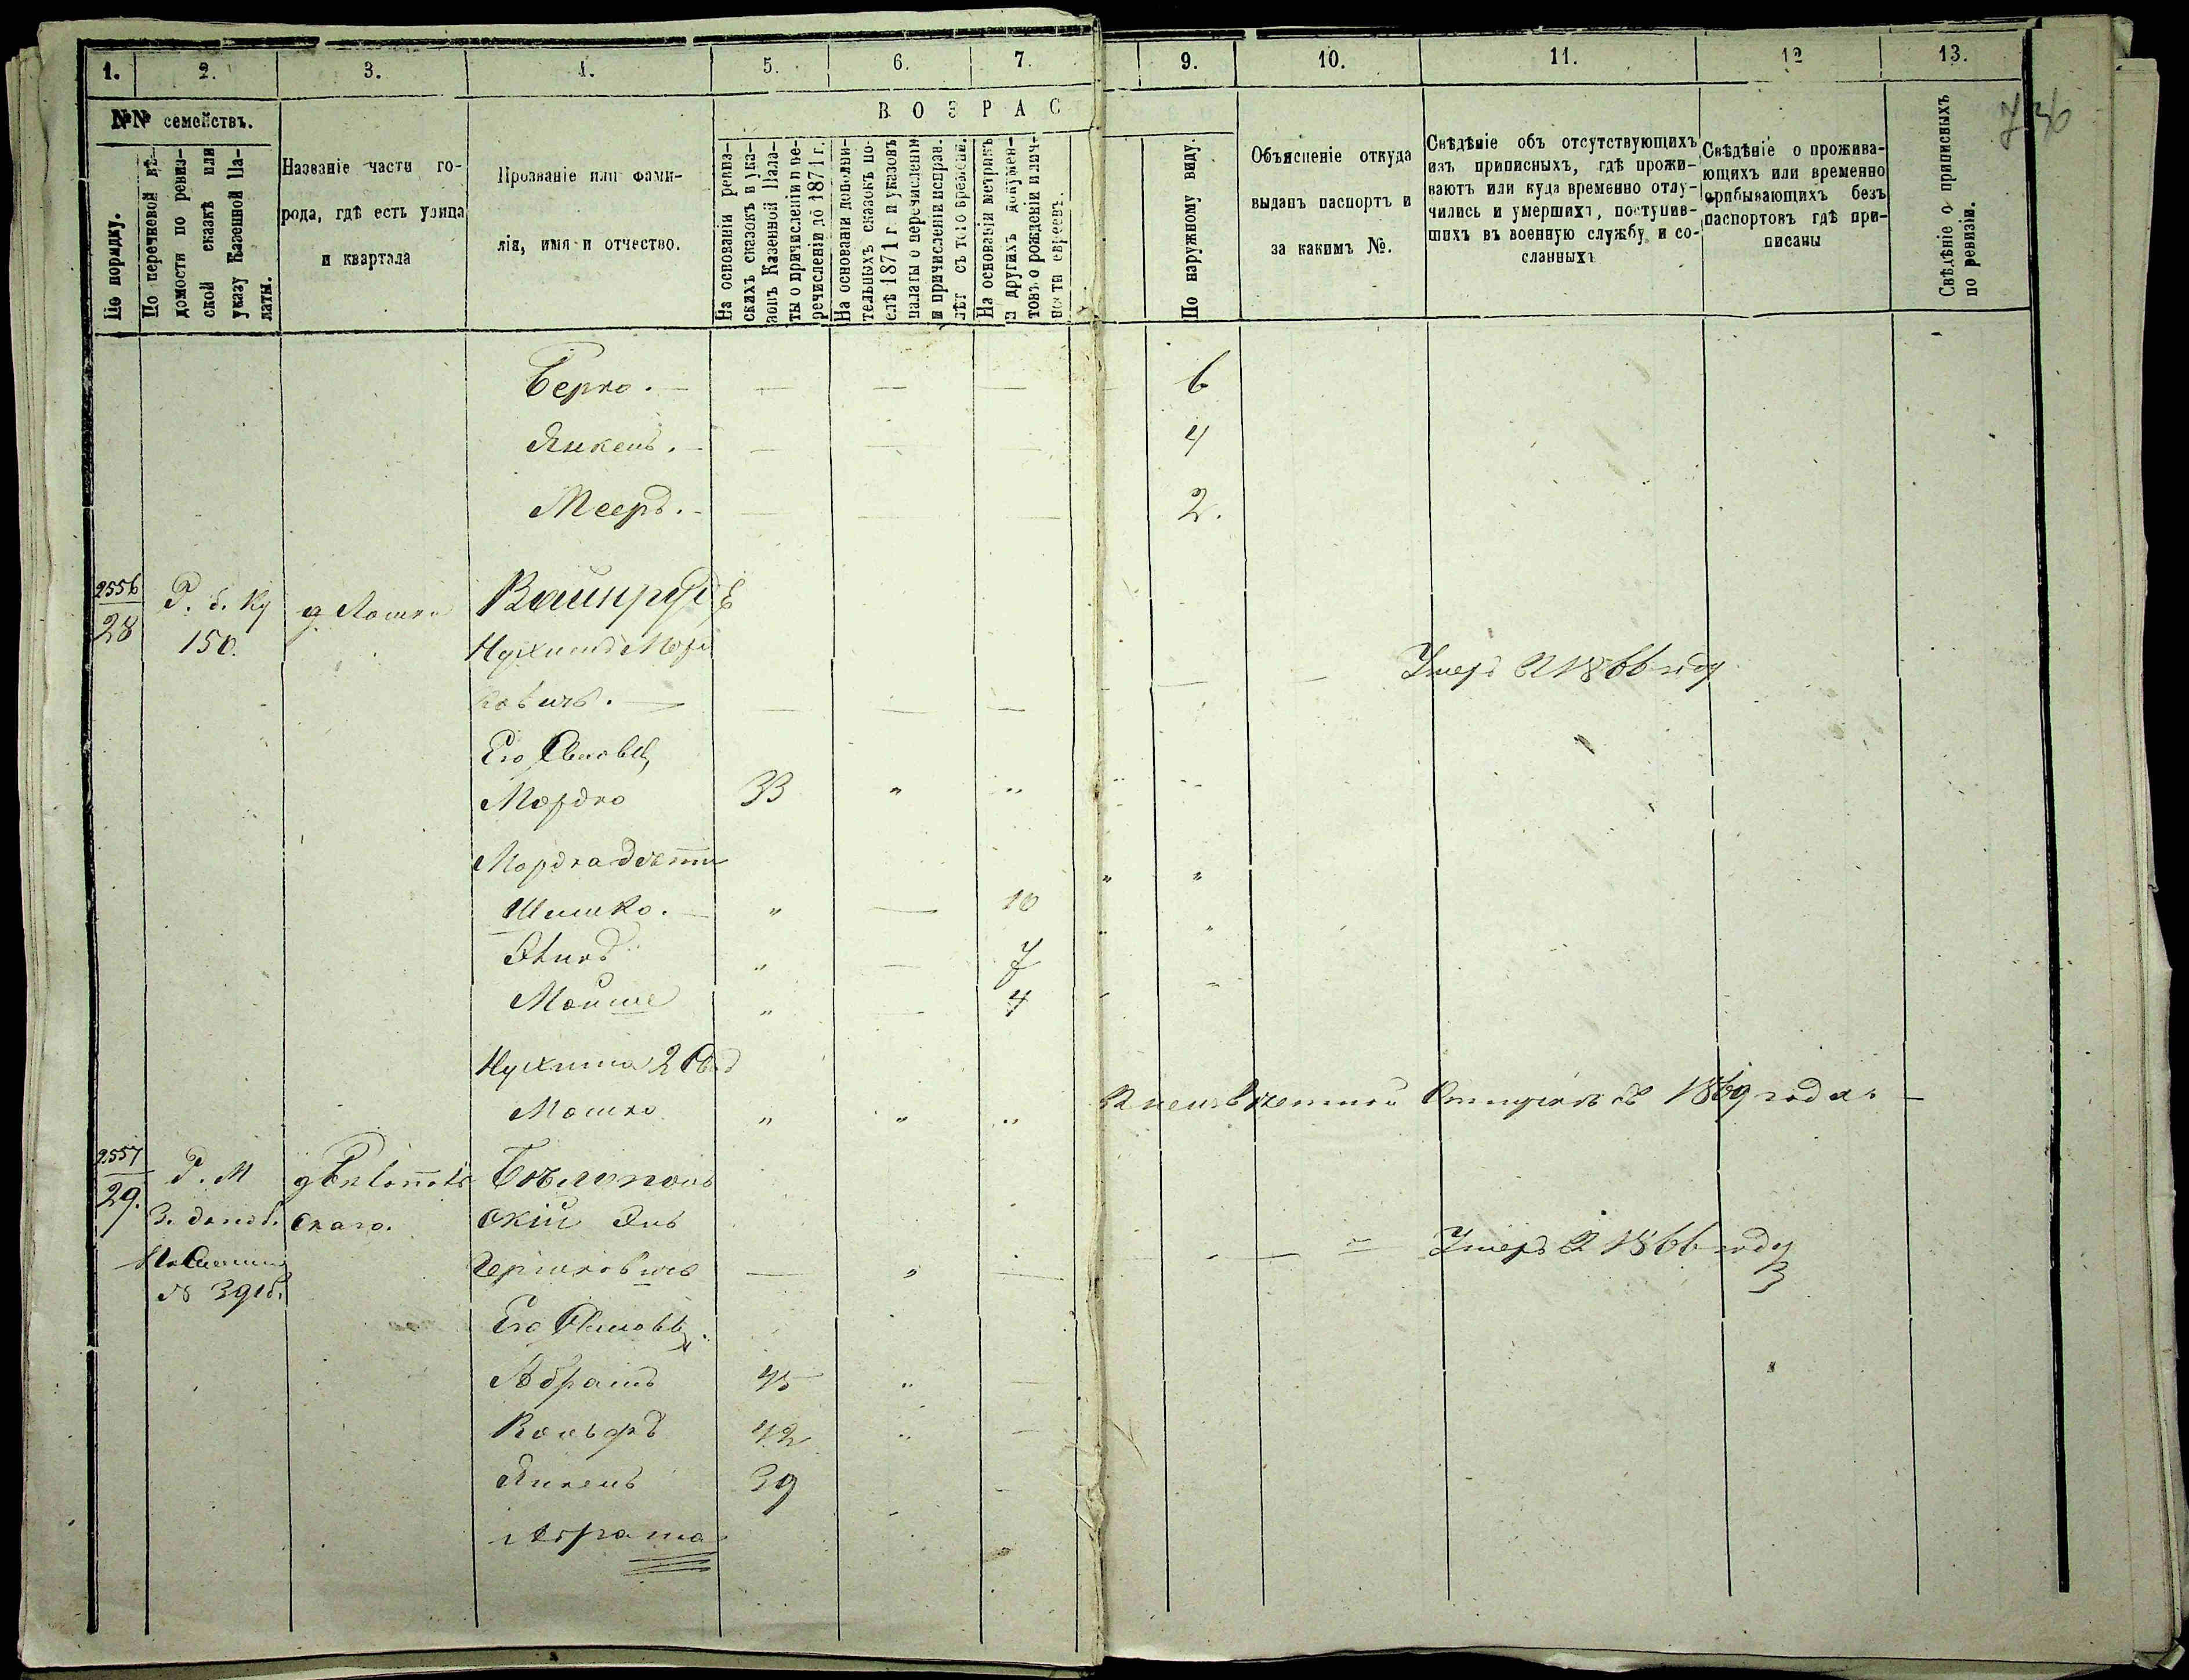 1. 2. 3. 4. 5. 6. 7. 9. 10. 11. 12 13.
№№ семействъ.
По порядку.
По перечневой вѣ-
домости по ревиз-
ской сказкѣ или
указу Казенной Па-
латы.
Названіе части го-
рода, гдѣ есть улица
и квартала
Прозваніе или фами-
лія, имя и отчество.
ВОЗРАС
На основаніи ревиз-
скихъ сказокъ и ука-
зовъ Казенной Пала-
ты о причисленіи и пе-
речисленіи до 1871 г.
На основаніи дополни-
тельныхъ сказокъ по-
слѣ 1871 г. и указовъ
палаты о перечисленіи
и причисленіи исправ.
лѣт съ того времени.
На основаніи метрикъ
и другихъ докумен-
товъ о рожденіи и лич-
ности евреевъ.
По наружному виду.
Объясненіе откуда
выданъ паспортъ и
за какимъ №.
Свѣдѣніе объ отсутствующихъ
изъ приписныхъ, гдѣ прожи-
ваютъ или куда временно отлу-
чились и умершихъ, поступив-
шихъ въ военную службу и со-
сланныхъ
Свѣдѣніе о прожива-
ющихъ или временно
прибывающихъ безъ
паспортовъ гдѣ при-
писаны
Свѣдѣніе о приписныхъ
по ревизіи.
Берко. — — — — 6
Янкель. — — — 4
Мееръ. — — — 2.
2556
28
150.
д. Мошко
Вайнрубъ
Нухимъ Мор
ковичъ. — — — —
Умеръ В 1866 году
Его Сыновья
Мордко 33 " "
Мордка дѣти
Шимко. — " — 10
" — 7
Мойше " — 4
Нухима 2 Сынъ
Мошко " " "
В неизвѣстной Отлучкѣ съ 1869 года —
2557
29.
Р. М
№ 391 б.
скаго.
Бѣлополь
скій Эль
Гершковичъ — " —
Умеръ В 1866 году
Его Сыновья
Абрамъ 45 " —
Вольфъ 42 " —
Янкель 39
Абрама